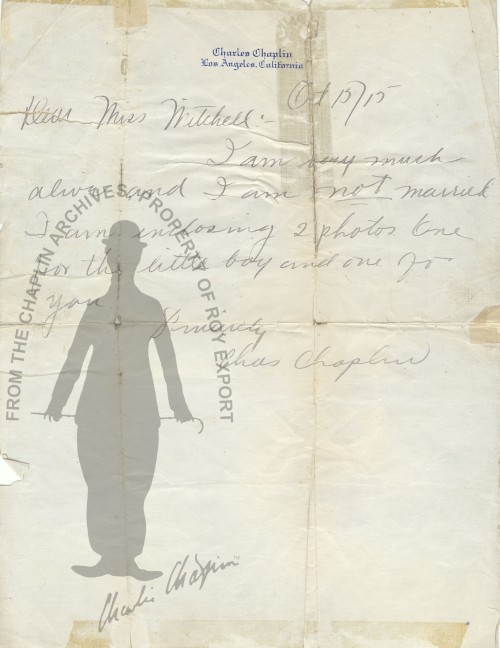 Charles Chaplin
Los Angeles, California
Oct 15/15
Dear Miss Witchell:-
I am very much
alive and I am not married
I am enclosing 2 photos One
for the little boy and one for
you
Sincerely
Chas Chaplin
FROM THE CHAPLIN ARCHIVES, PROPERTY OF ROY EXPORT
Charlie Chaplin™